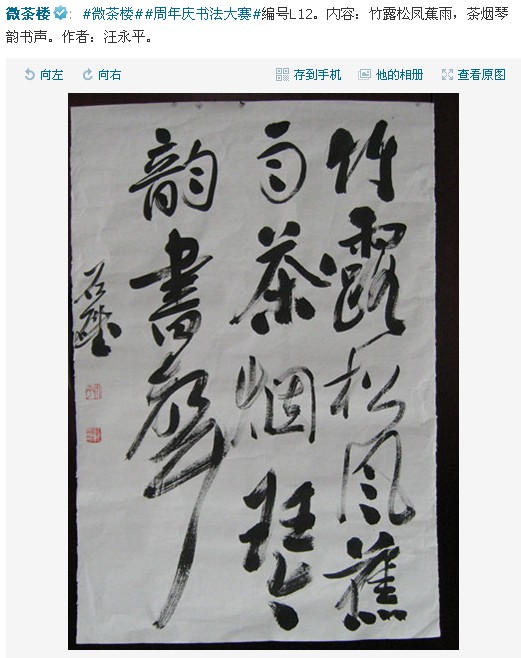 微茶楼：#微茶楼##周年庆书法大赛#编号L12。内容：竹露松凤蕉雨，茶烟琴
韵书声。作者：汪永平。
向左 向右 存到手机 他的相册 查看原图
竹露松风蕉
雨茶烟琴
韵書聲